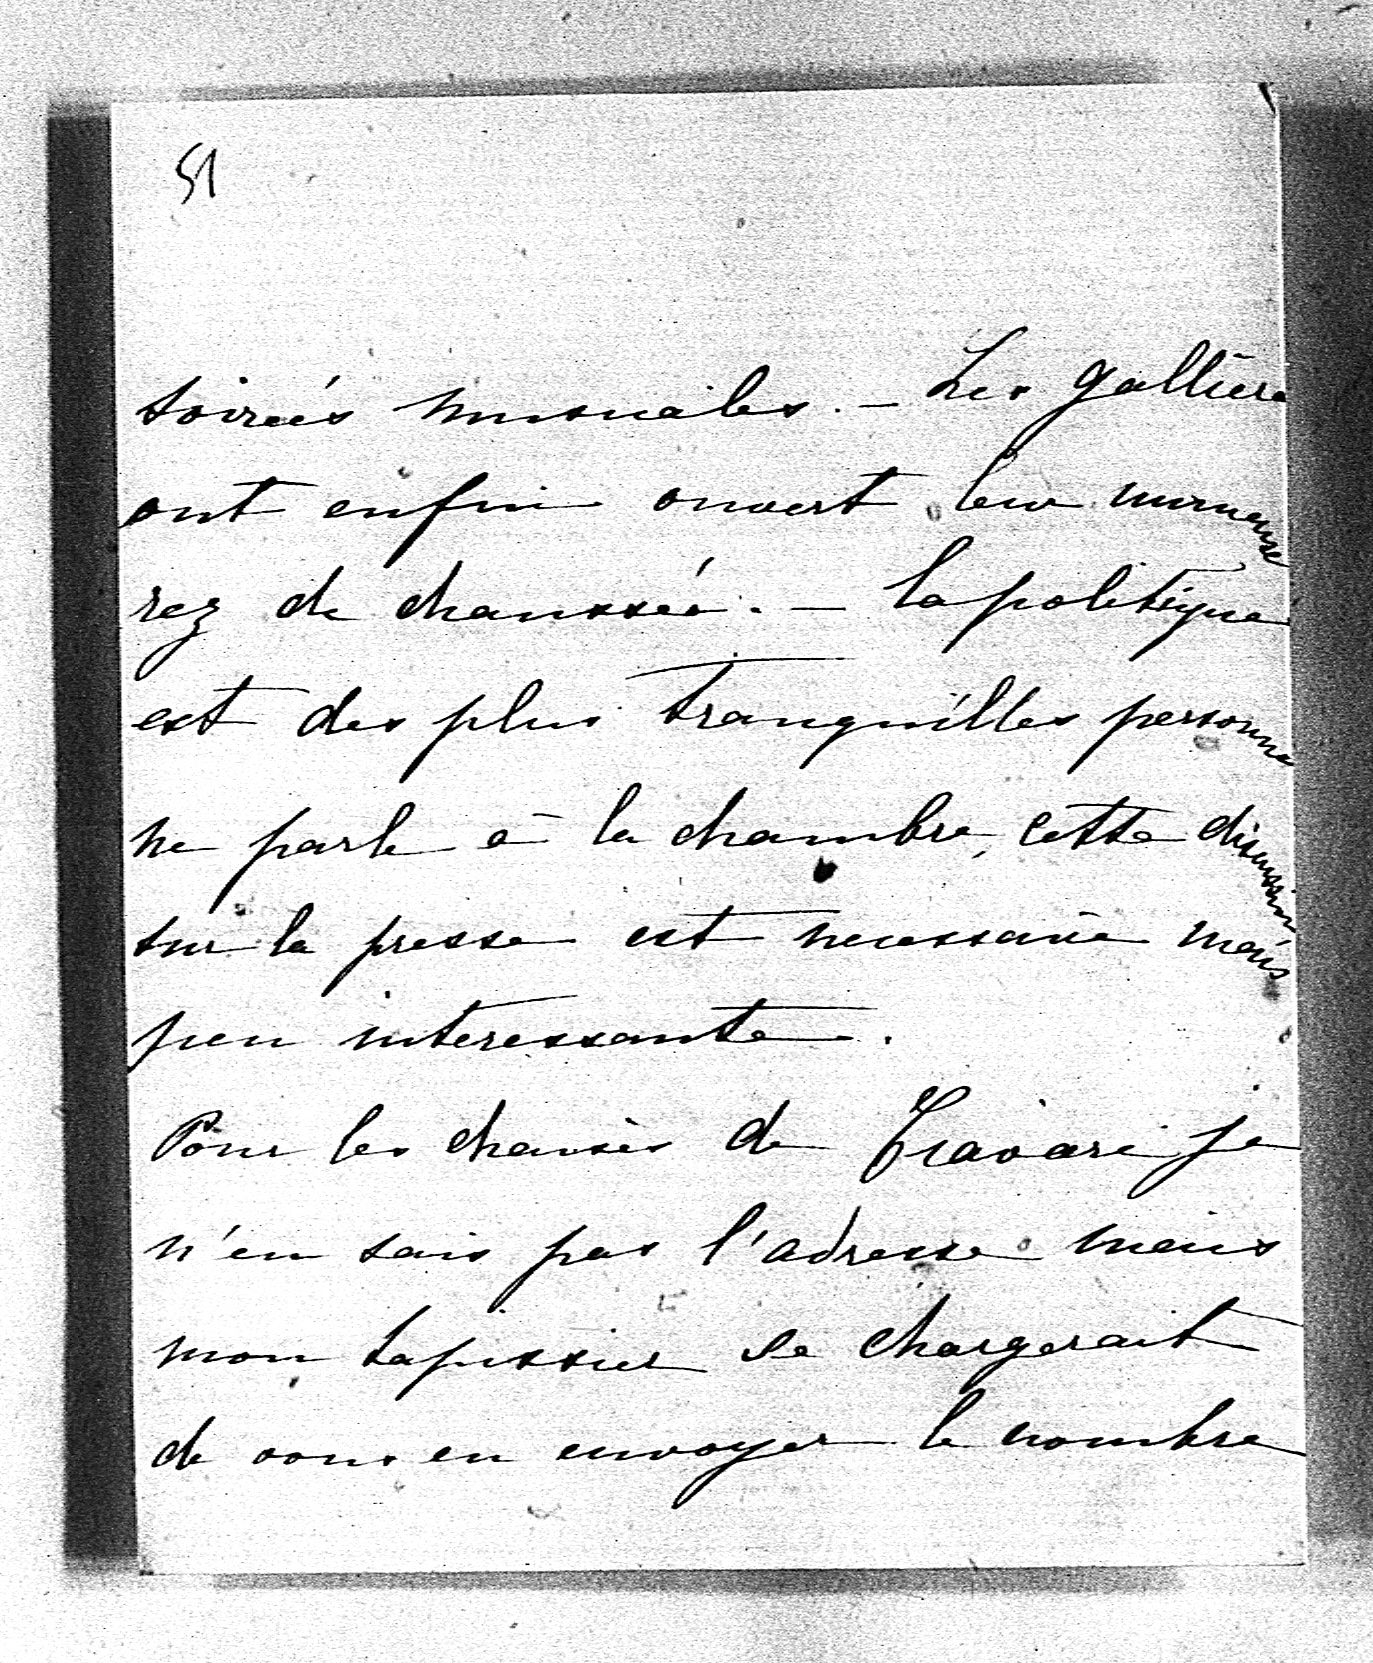 51
soireés musicales. - Les Galliera
ont enfin ouvert leur immense
rez de chaussée. - la politique
est des plus tranquilles personne
ne parle à la chambre, cette discussion
sur la presse est necessaire mais
peu interessante.
Pour les chaises de Tiavari je
n'en sais pas l'adresse mais
mon tapissier se chargerait
de vous en envoyer le nombre